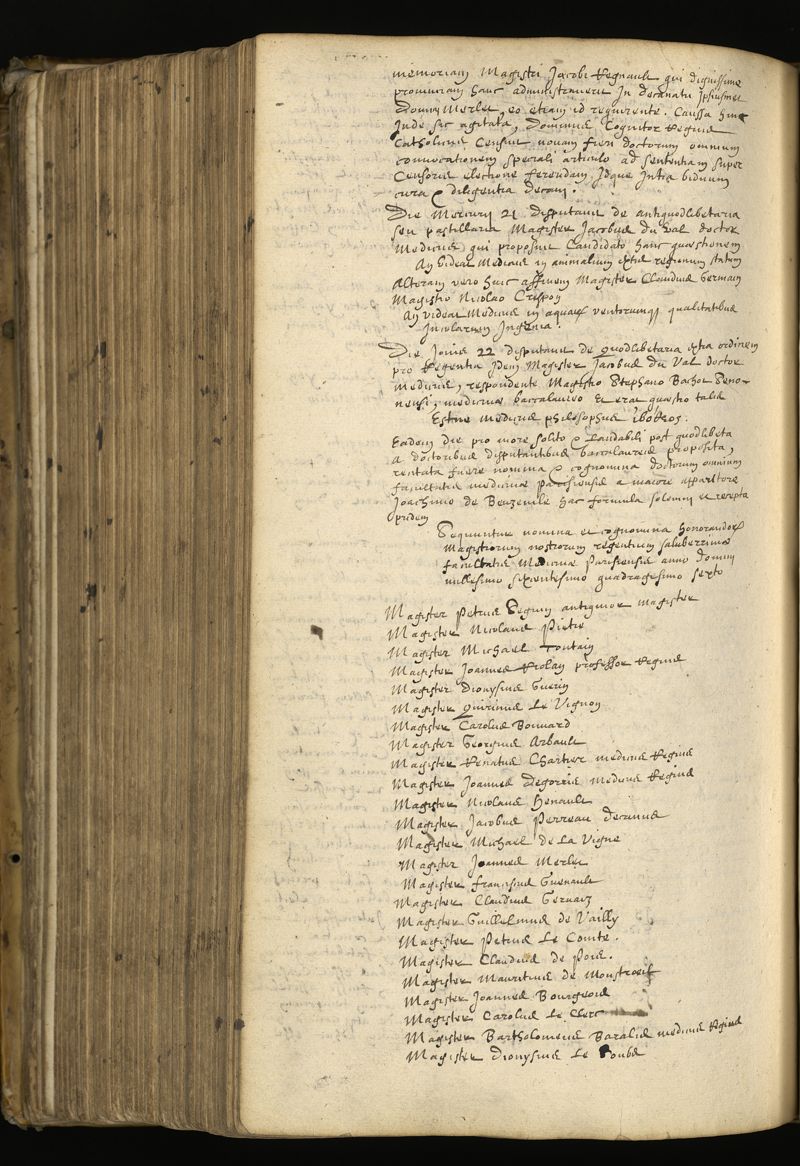 memoriam Magistri Jacobi Regnault qui dignissime
provinciam hanc administraverit In decanatu Ipsiusmet
Domini Merlet, eo etiam id requirente. Caussa hinc
Inde sic agitata, Dominus Cognitor Regius
Catholicus Censuit novam fieri doctorum omnium
convocationem speciali articulo ad sententiam super
Censoris electione ferendam, Idque Intra biduum
cura & diligentia Decani.
Die Mercurij 21 disputavit de antiquodlibetaria
seu pastillaria Magister Jacobus du Val doctor
Medicus, qui proposuit Candidato hanc quæstionem
An videat Medicus in animalium extis regionum statum
Alteram vero huic affinem Magister Claudius Germain
Magistro Nicolao Crespon
An videat Medicus in aquarum ventorumque qualitatibus
Incolarum Ingenia.
Die Jovis 22 disputavit de quodlibetaria extra ordinem
pro Regentia Idem Magister Jacobus du Val doctor
medicus, respondente Magistro Stephano Bachot Seno-
nensi, medicinæ baccalaureo Et erat quæstio talis
Estne medicus philosophus ἰσόθεος.
Eadem die pro more solito & Laudabili post quodlibeta
a doctoribus disputantibus baccalaureis proposita,
recitata fuere nomina & cognomina doctorum omnium
facultatis medicinæ parisiensis a maiore apparitore
Joachimo de Beuzevile hac formula solemni et recepta
pridem
Sequuntur nomina et cognomina honorandorum
Magistrorum nostrorum regentium saluberrimæ
facultatis Medicinæ Parisiensis anno domini
millesimo sexcentesimo quadragesimo sexto
Magister Petrus Seguin antiquior magister
Magister Nicolaus Pietre
Magister Michael Toutain
Magister Joannes Riolan professor Regius
Magister Dionysius Guerin
Magister Quirinus Le Vignon
Magister Carolus Bouvard
Magister Georgius Arbault
Magister Renatus Chartier medicus Regius
Magister Joannes Degorris medicus Regius
Magister Nicolaus Henault
Magister Jacobus Perreau Decanus
Magister Michael de La Vigne
Magister Joannes Merlet
Magister franciscus Guenault
Magister Claudius Gervais
Magister Guillelmus de Vailly
Magister Petrus Le Comte.
Magister Claudius de Pois.
Magister Mauritius de Monstroeil
Magister Joannes Bourgeois
Magister Carolus Le Clerc
Magister Bartholomeus Baralis medicus Regius
Magister Dionysius Le Soubs